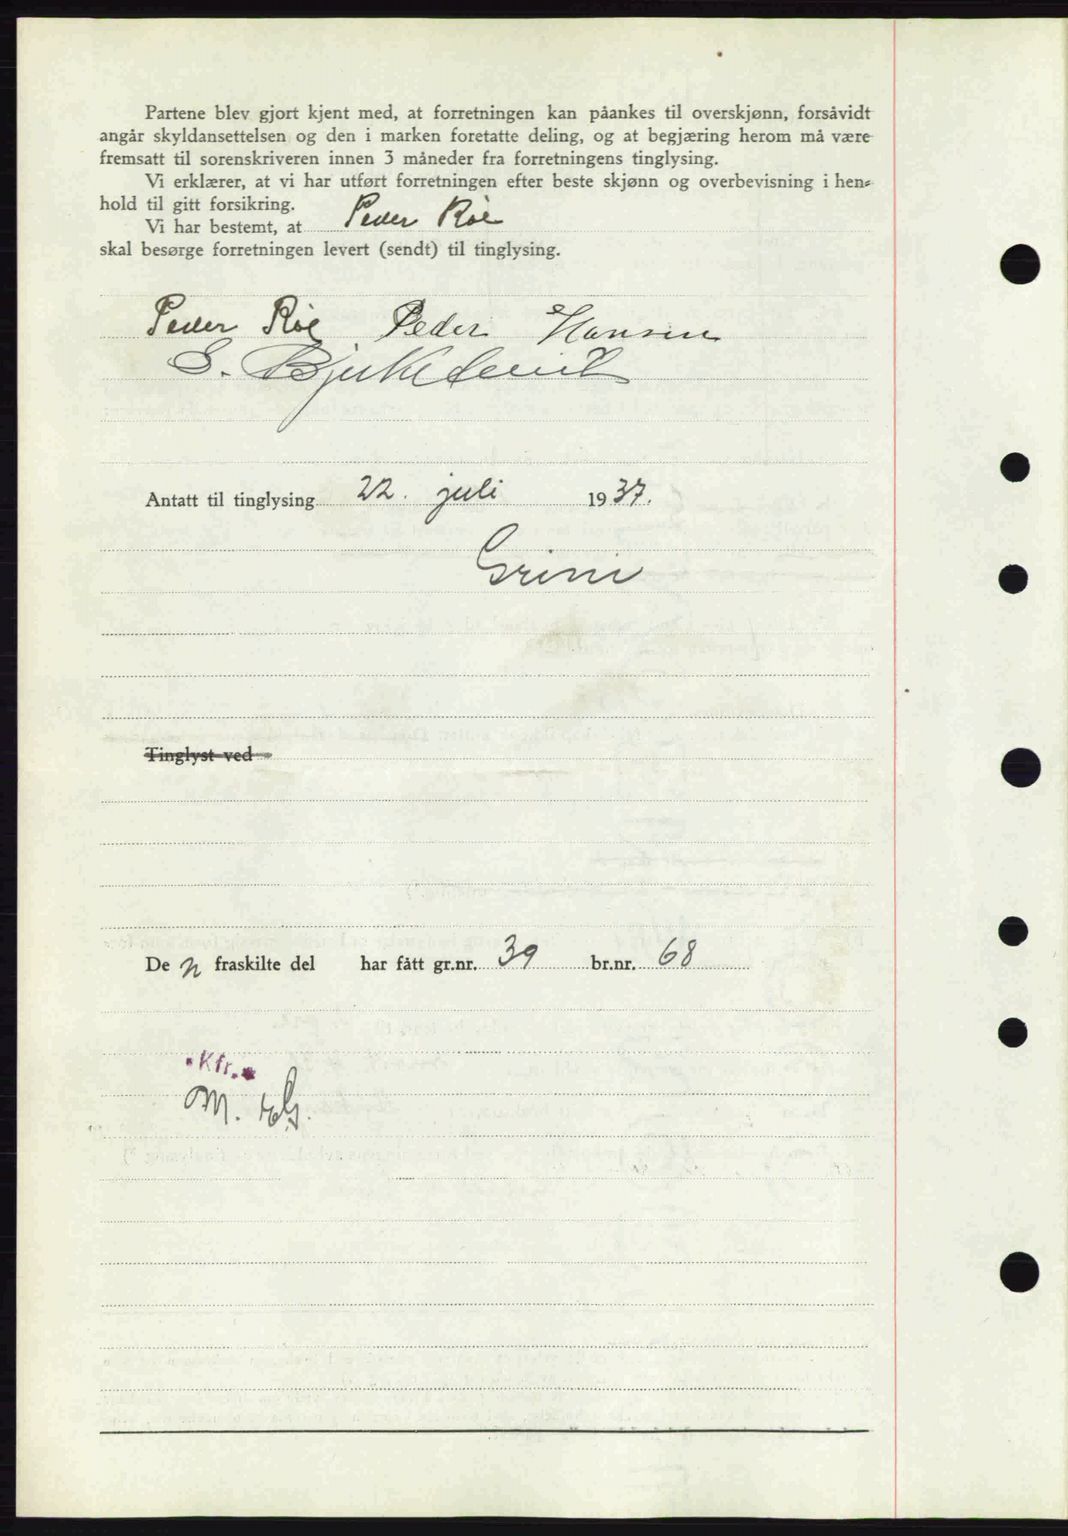 Partene blev gjort kjent med, at forretningen kan påankes til overskjønn, forsåvidt
angår skyldansettelsen og den i marken foretatte deling, og at begjæring herom må være
fremsatt til sorenskriveren innen 3 måneder fra forretningens tinglysing.
Vi erklærer, at vi har utført forretningen efter beste skjønn og overbevisning i hen-
hold til gitt forsikring.
Vi har bestemt, at Peder Röe
skal besørge forretningen levert (sendt) til tinglysing.
Peder Röe Peder Hansen
S.
Antatt til tinglysing 22. juli 1937.
Grini
Tinglyst ved
De n fraskilte del har fått gr.nr. 39 br.nr. 68
Kfr.
M.